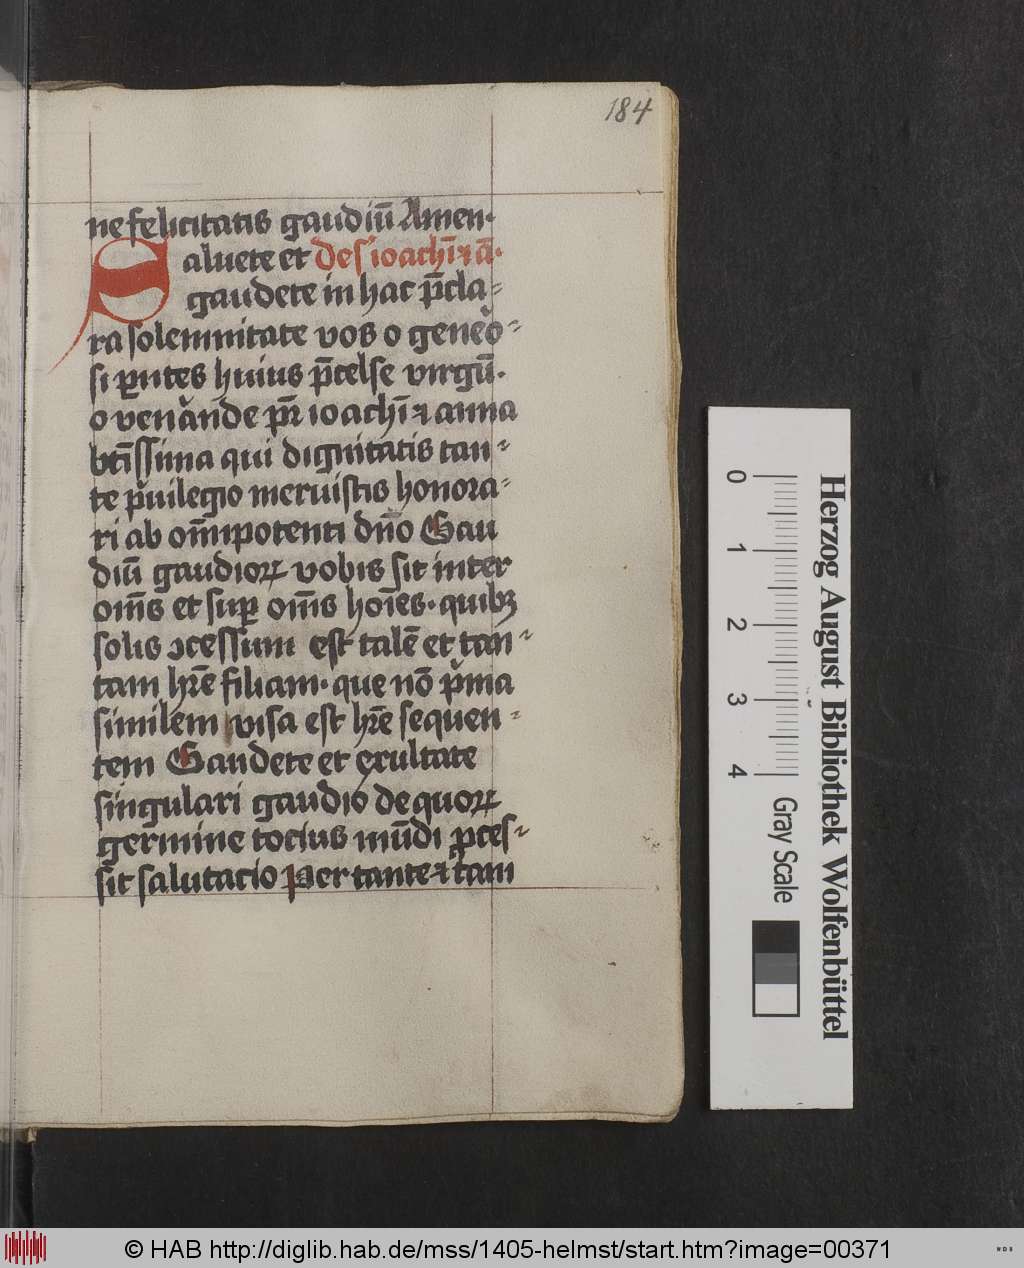 184
ne felicitatis gaudiū Amen·
Saluete et De s ioachī ⁊ ā·
gaudete in hac p̄cla⸗
ra solemnitate vos o geneo⸗
si pn̄tes huius p̄celse virgū·
o venande pr̄ ioachī ⁊ anna
btīssima qui dignitatis tan⸗
te pͥuilegio meruistis honora⸗
ri ab om̄ipotenti dn̄o Gau
diū gaudioꝝ vobis sit inter
om̄s et suꝑ om̄s hoīes· quibꝫ
solis ↄcessum est talē et tan⸗
tam hr̄e filiam· que nō pͥma
similem visa est hr̄e sequen⸗
tem Gaudete et exultate
singulari gaudio de quoꝝ
germine tocius mūdi ꝓces⸗
sit salutacio Per tante ⁊ tam
Herzog August Bibliothek Wolfenbüttel
0 1 2 3 4
Gray Scale
© HAB http://diglib.hab.de/mss/1405-helmst/start.htm?image=00371